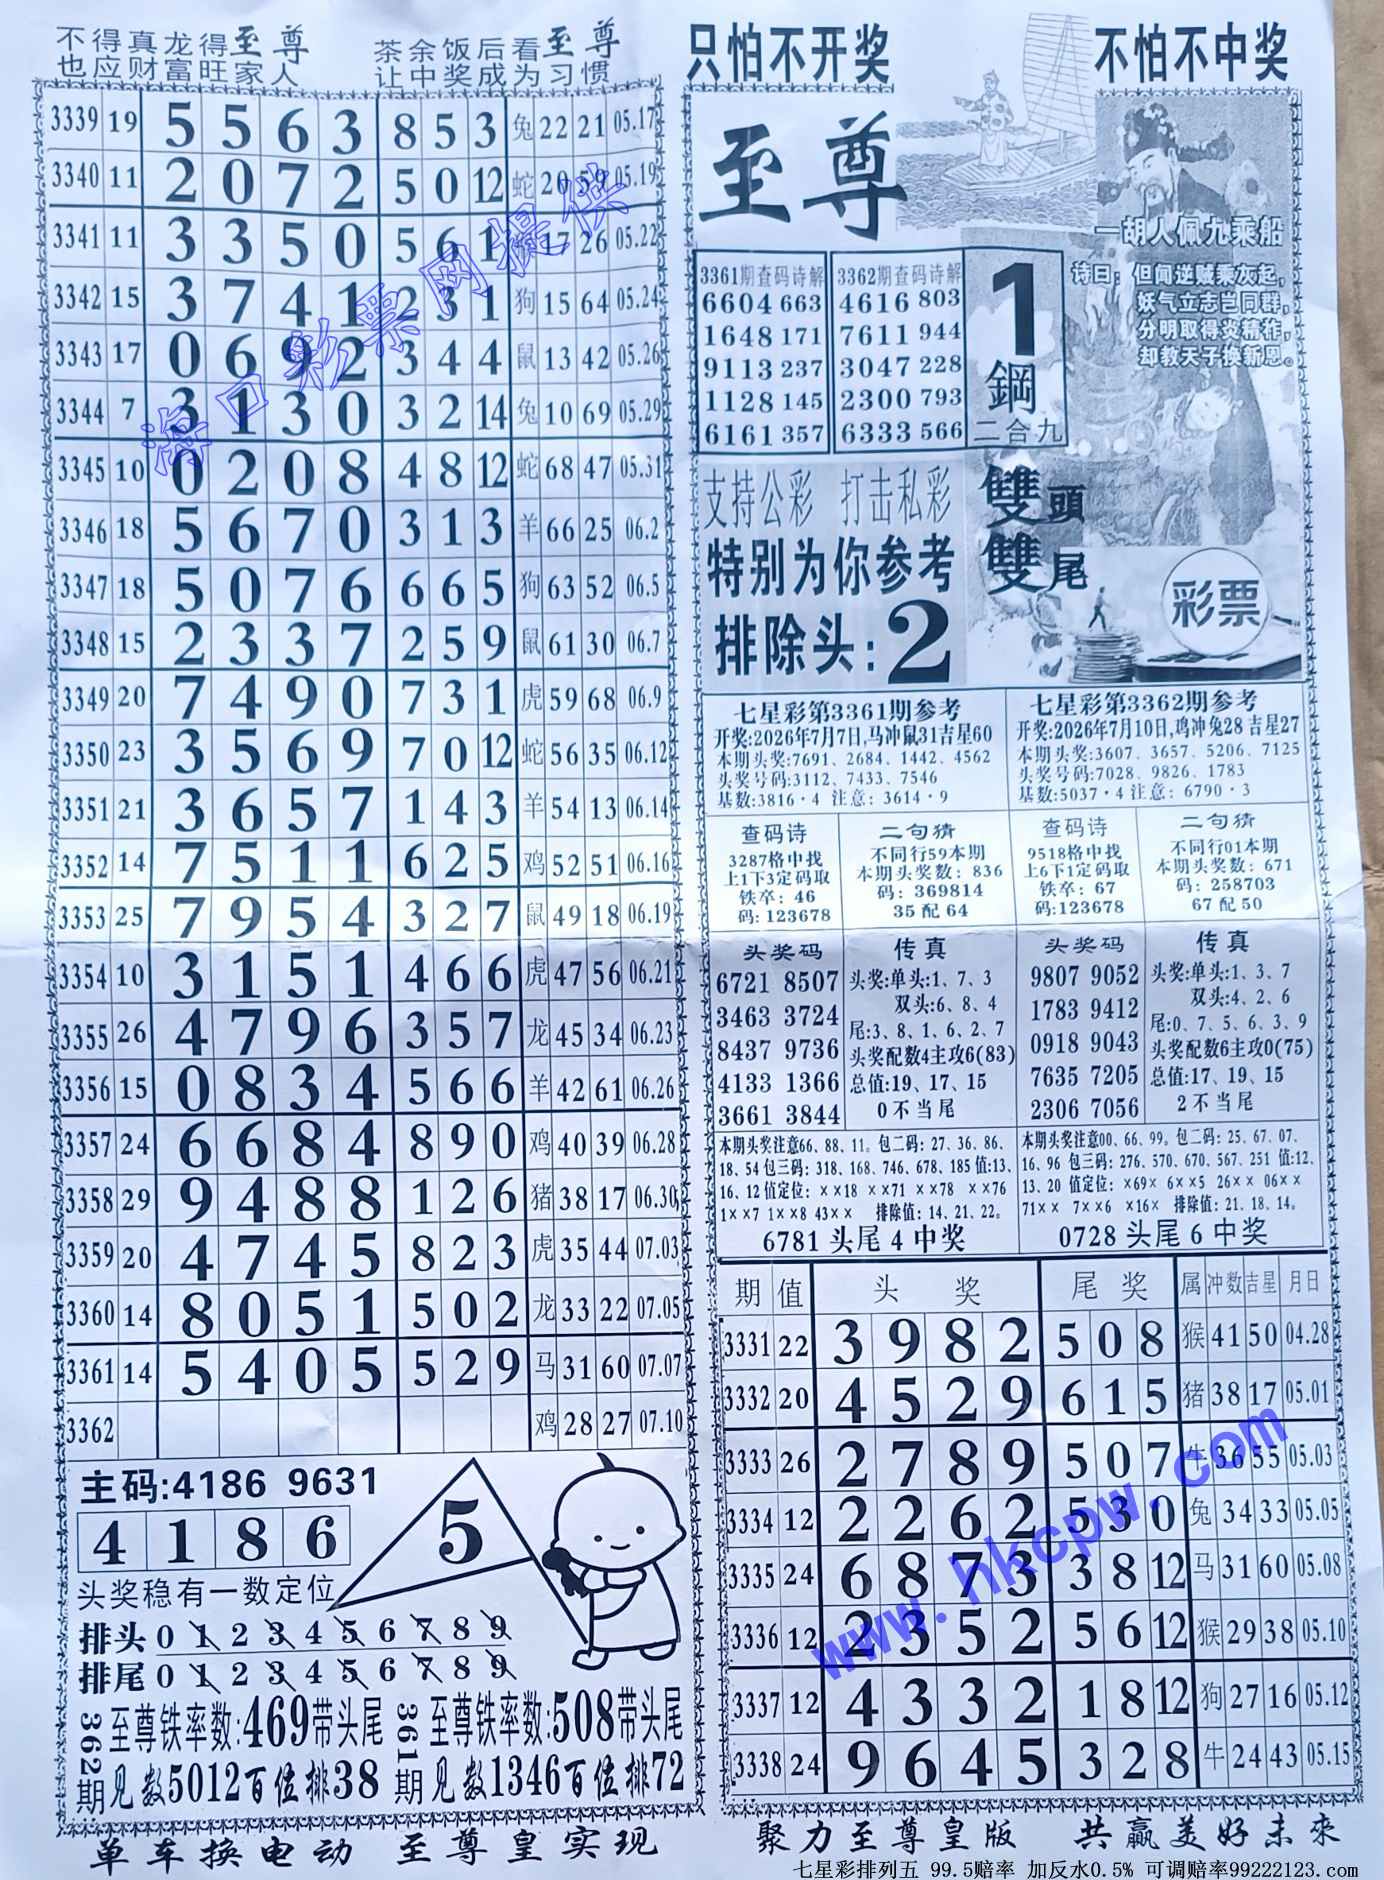 不得真龙得至尊
也应财富旺家人
茶余饭后看至尊
让中奖成为习惯
3339 19 5 5 6 3 8 5 3 兔 22 21 05.17
3340 11 2 0 7 2 5 0 12 蛇 20 59 05.19
3341 11 3 3 5 0 5 6 1 17 26 05.22
3342 15 3 7 4 1 2 3 1 狗 15 64 05.24
3343 17 0 6 9 2 3 4 4 鼠 13 42 05.26
3344 7 3 1 3 0 3 2 14 兔 10 69 05.29
3345 10 0 2 0 8 4 8 12 蛇 68 47 05.31
3346 18 5 6 7 0 3 1 3 羊 66 25 06.2
3347 18 5 0 7 6 6 6 5 狗 63 52 06.5
3348 15 2 3 3 7 2 5 9 鼠 61 30 06.7
3349 20 7 4 9 0 7 3 1 虎 59 68 06.9
3350 23 3 5 6 9 7 0 12 蛇 56 35 06.12
3351 21 3 6 5 7 1 4 3 羊 54 13 06.14
3352 14 7 5 1 1 6 2 5 鸡 52 51 06.16
3353 25 7 9 5 4 3 2 7 鼠 49 18 06.19
3354 10 3 1 5 1 4 6 6 虎 47 56 06.21
3355 26 4 7 9 6 3 5 7 龙 45 34 06.23
3356 15 0 8 3 4 5 6 6 羊 42 61 06.26
3357 24 6 6 8 4 8 9 0 鸡 40 39 06.28
3358 29 9 4 8 8 1 2 6 猪 38 17 06.30
3359 20 4 7 4 5 8 2 3 虎 35 44 07.03
3360 14 8 0 5 1 5 0 2 龙 33 22 07.05
3361 14 5 4 0 5 5 2 9 马 31 60 07.07
3362 鸡 28 27 07.10
海口彩票网提供
主码:4186 9631
4 1 8 6
5
头奖稳有一数定位
排头 0 1 2 3 4 5 6 7 8 9
排尾 0 1 2 3 4 5 6 7 8 9
362期
至尊铁率数:469带头尾
见数5012百位排38
361期
至尊铁率数:508带头尾
见数1346百位排72
单车换电动 至尊皇实现
只怕不开奖
不怕不中奖
至尊
一胡人佩九乘船
诗曰: 但闻逆贼乘灰起,
妖气立志岂同群,
分明取得炎精祚,
却教天子换新恩。
3361期查码诗解
6604 663
1648 171
9113 237
1128 145
6161 357
3362期查码诗解
4616 803
7611 944
3047 228
2300 793
6333 566
1
鋼
二合九
支持公彩 打击私彩
特别为你参考
排除头:2
雙頭
雙尾
彩票
七星彩第3361期参考
开奖:2026年7月7日,马冲鼠31吉星60
本期头奖:7691、2684、1442、4562
头奖号码:3112、7433、7546
基数:3816·4 注意: 3614·9
七星彩第3362期参考
开奖:2026年7月10日,鸡冲兔28 吉星27
本期头奖:3607、3657、5206、7125
头奖号码:7028、9826、1783
基数:5037·4 注意: 6790·3
查码诗
3287格中找
上1下3定码取
铁卒: 46
码:123678
二句猜
不同行59本期
本期头奖数: 836
码: 369814
35 配 64
查码诗
9518格中找
上6下1定码取
铁卒: 67
码:123678
二句猜
不同行01本期
本期头奖数: 671
码: 258703
67 配 50
头奖码
6721 8507
3463 3724
8437 9736
4133 1366
3661 3844
传真
头奖:单头:1、7、3
双头:6、8、4
尾:3、8、1、6、2、7
头奖配数4主攻6(83)
总值:19、17、15
0 不当尾
头奖码
9807 9052
1783 9412
0918 9043
7635 7205
2306 7056
传真
头奖:单头:1、3、7
双头:4、2、6
尾:0、7、5、6、3、9
头奖配数6主攻0(75)
总值:17、19、15
2 不当尾
本期头奖注意66、88、11。包二码: 27、36、86、
18、54 包三码: 318、168、746、678、185 值:13、
16、12 值定位: ××18 ××71 ××78 ××76
1××7 1××8 43×× 排除值: 14、21、22。
6781 头尾 4 中奖
本期头奖注意00、66、99。包二码: 25、67、07、
16、96 包三码: 276、570、670、567、251 值:12、
13、20 值定位: ×69× 6××5 26×× 06××
71×× 7××6 ×16× 排除值: 21、18、14。
0728 头尾 6 中奖
期 值 头奖 尾奖 属 冲数 吉星 月日
3331 22 3 9 8 2 5 0 8 猴 41 50 04.28
3332 20 4 5 2 9 6 1 5 猪 38 17 05.01
3333 26 2 7 8 9 5 0 7 牛 36 55 05.03
3334 12 2 2 6 2 5 3 0 兔 34 33 05.05
3335 24 6 8 7 3 3 8 12 马 31 60 05.08
3336 12 2 3 5 2 5 6 12 猴 29 38 05.10
3337 12 4 3 3 2 1 8 12 狗 27 16 05.12
3338 24 9 6 4 5 3 2 8 牛 24 43 05.15
www.hkcpw.com
聚力至尊皇版 共赢美好未来
七星彩排列五 99.5赔率 加反水0.5% 可调赔率99222123.com